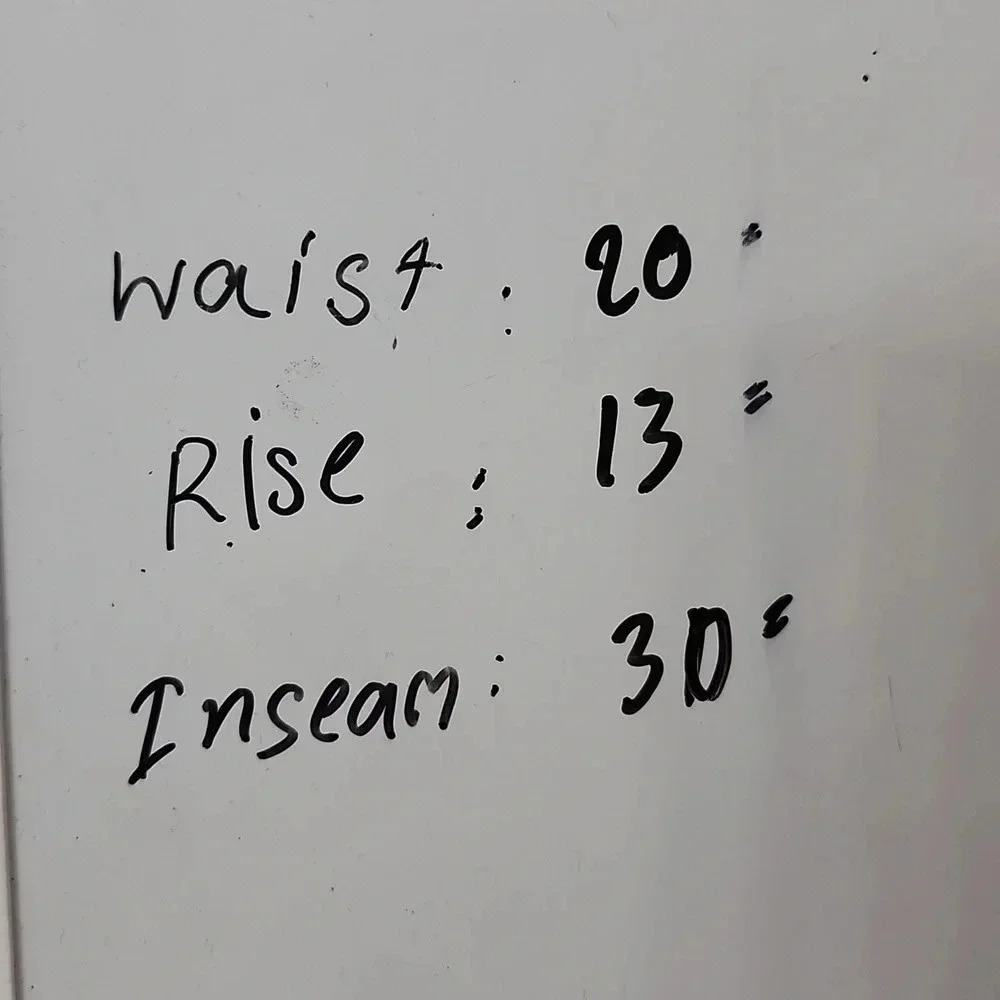 Waist : 20"
Rise : 13"
Inseam : 30"